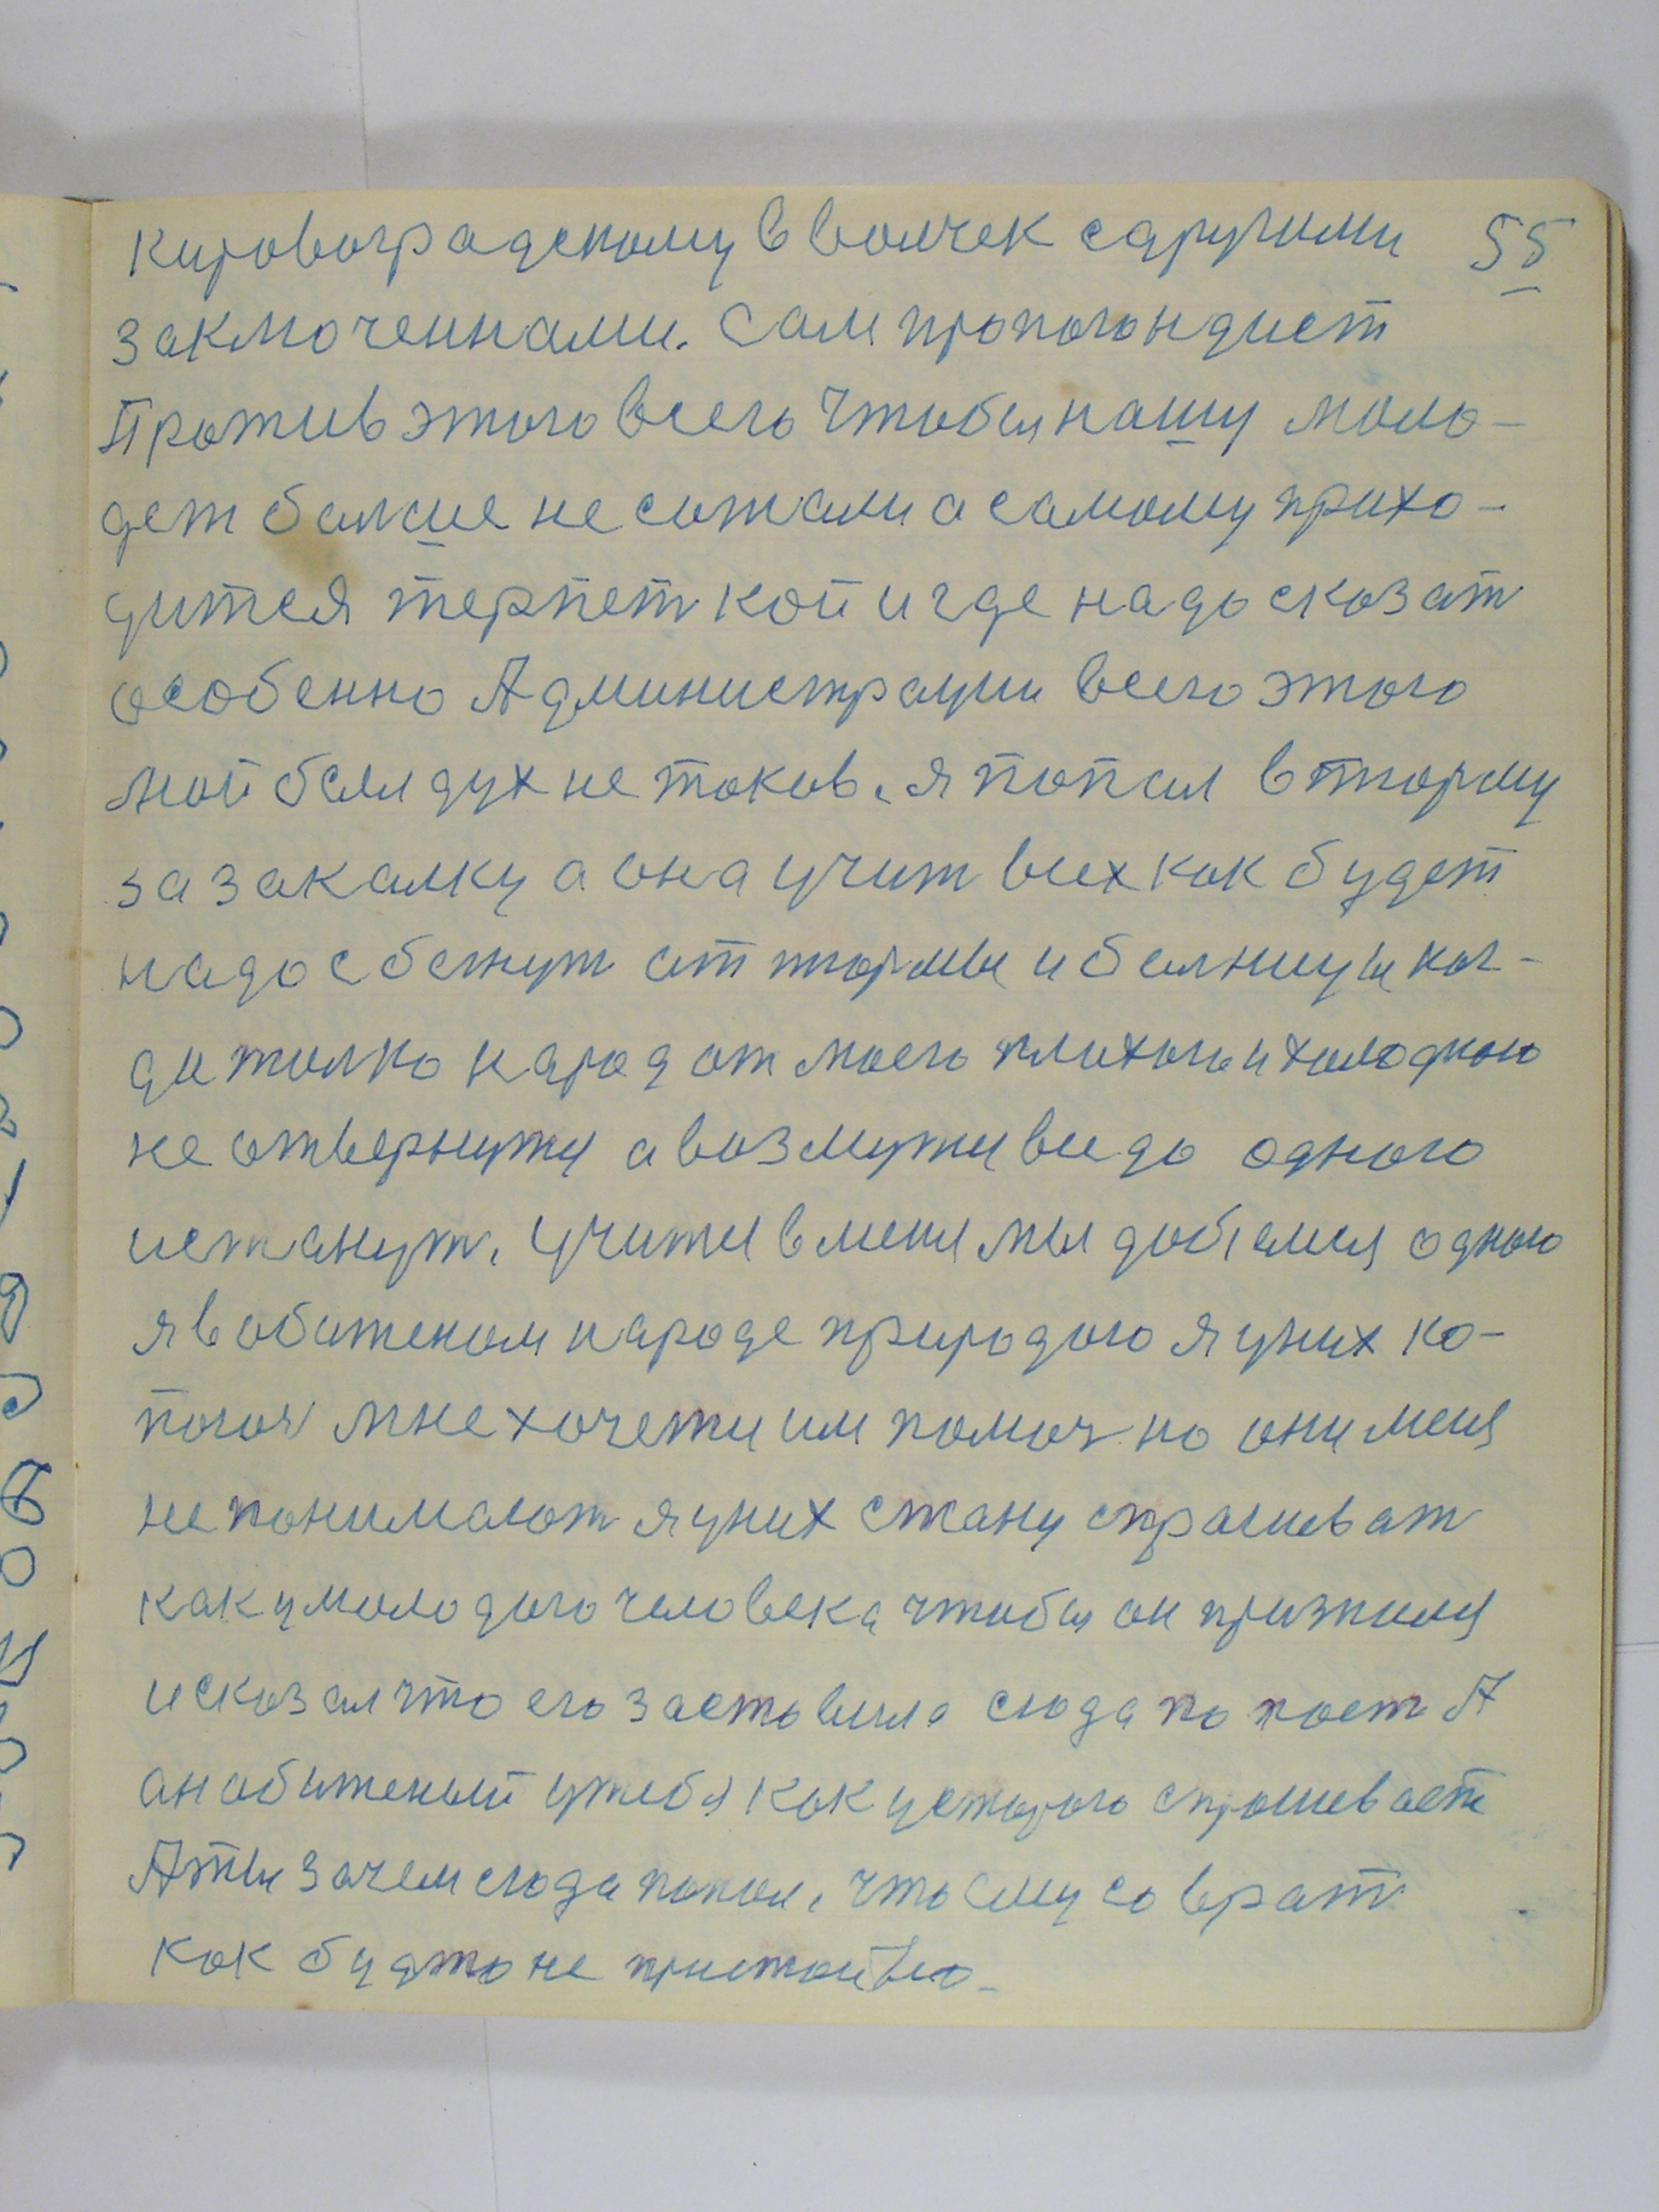 кировоградскому в волчек сдругими 55
заключеннами. Сам пропогондист
Против этого всего Чтобы нашу моло-
деж болше не сожали а самому прихо-
дится терпет кой и где надо сказат
особенно Администрации всего этого
мой был дух не таков. я попал в тюрму
за закалку а она учит всех как будет
надо сбегут от тюрмы и болницы ког-
да толко народ от моего плихого и холодного
не отвернутц а возмутц все до одного
и станут. Учитц в меня мы добемся одного
я в обиженом народе природою я у них ко-
погоч мне хочетц им помоч но они меня
не понимают я у них стану спрашиват
как у молодого человека чтобы он признался
и сказал что его заставило сюда по паст А
он обиженый у тебя как у старого спрашивает
А ты зачем сюда попал, что ему соврат
как будто не пристойно